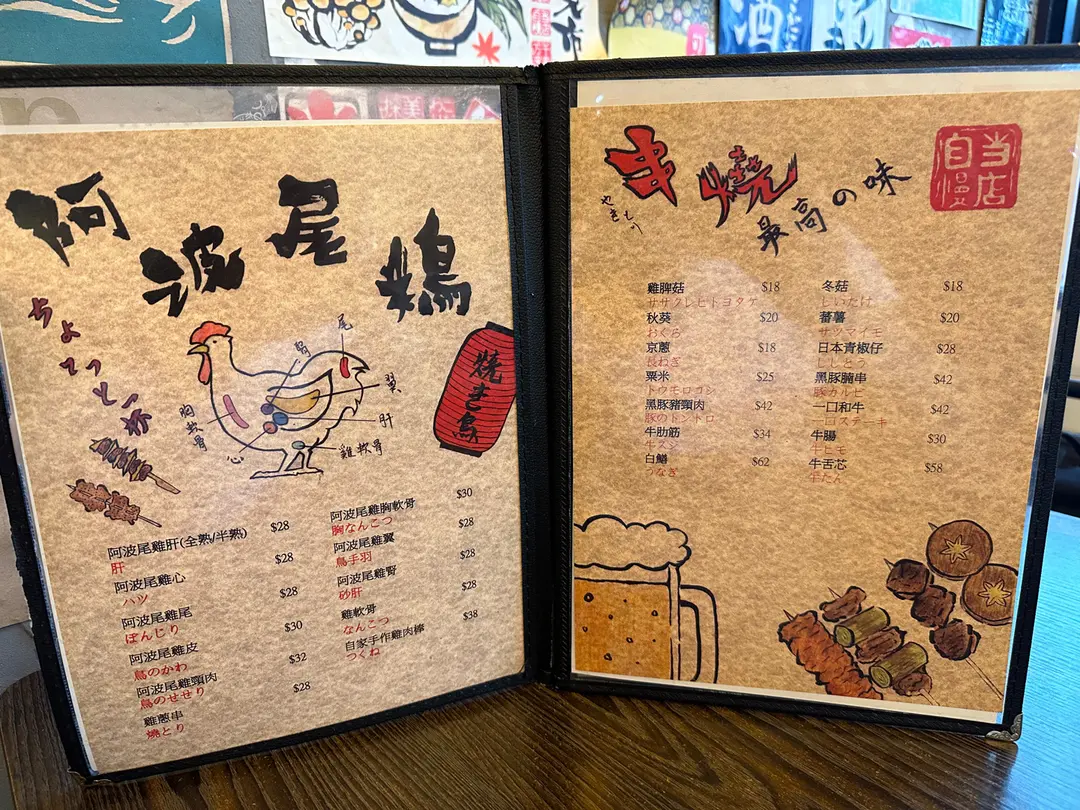 酒
阿波尾鶏
ちょっと一杯
尾
腎
翼
肝
胸軟骨
心
雞軟骨
焼き鳥
阿波尾雞肝(全熟/半熟) $28
肝
阿波尾雞心 $28
ハツ
阿波尾雞尾 $28
ぼんじり
阿波尾雞皮 $30
鳥のかわ
阿波尾雞頸肉 $32
鳥のせせり
雞蔥串 $28
燒とり
阿波尾雞胸軟骨 $30
胸なんこつ
阿波尾雞翼 $28
鳥手羽
阿波尾雞腎 $28
砂肝
雞軟骨 $28
なんこつ
自家手作雞肉棒 $38
つくね
串燒
やきもり
最高の味
当店
自慢
雞脾菇 $18
ササクレヒトヨタケ
秋葵 $20
おくら
京蔥 $18
長ねぎ
粟米 $25
トウモロコシ
黑豚豬頸肉 $42
豚のトントロ
牛肋筋 $34
牛スジ
白鱔 $62
うなぎ
冬菇 $18
しいたけ
蕃薯 $20
サツマイモ
日本青椒仔 $28
ししとう
黑豚腩串 $42
豚カルビ
一口和牛 $42
一口ステーキ
牛腸 $30
牛ヒモ
牛舌芯 $58
牛たん